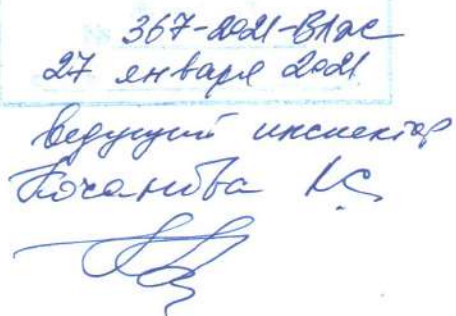 367-2021-Влас
27 января 2021
ведущий инспектор
Коханова К.С.